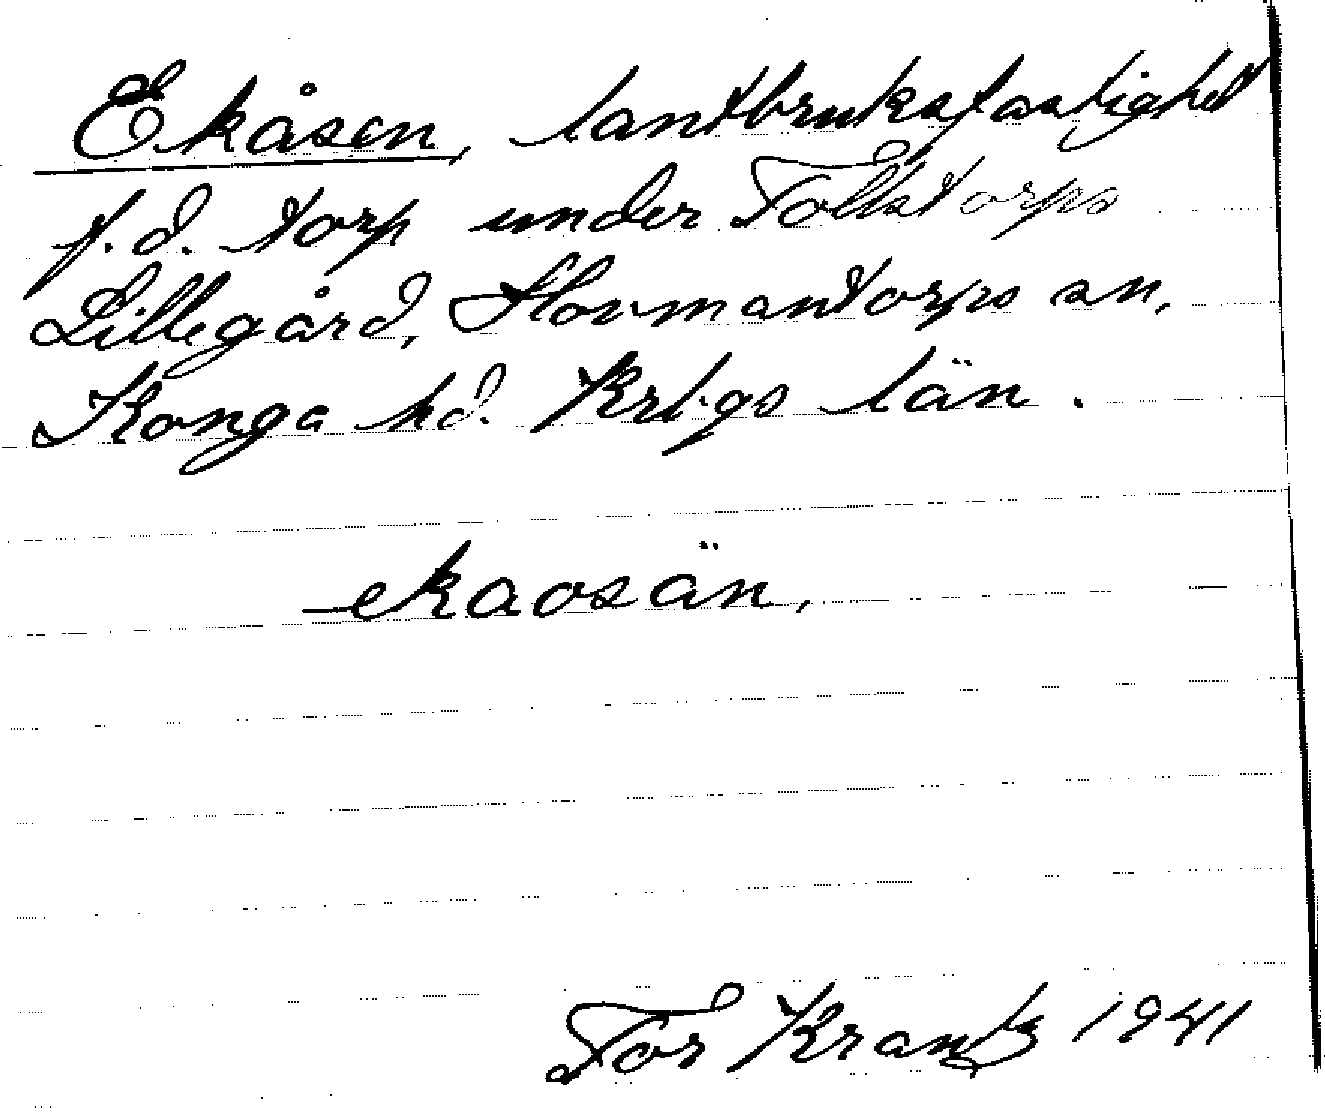 Ekåsen, lantbruksfastighet
f.d. torp under Tollstorps
Lillegård, Hovmantorps sn,
Konga hd. Krbgs län.
ekaosän,
Tor Krantz 1941